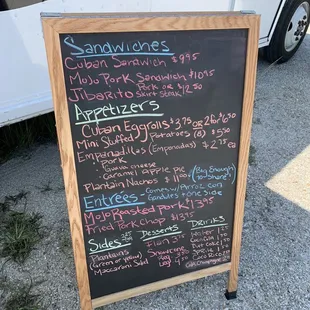 Sandwiches
Cuban Sandwich $9.95
Mojo Pork Sandwich $10.95
Jibarito Pork or $12.50
Skirt Steak
Appetizers
Cuban Eggrolls $3.75 OR 2 for $6.50
Mini Stuffed Potatoes (8) $5.50
Empanadillas (Empanadas) $2.75 ea
Pork
Guava cheese
Caramel apple pie
Plantain Nachos $11.95 (Big Enough to Share)
Entrées Comes w/ Arroz con
Gandules + one side
Mojo Roasted Pork $13.95
Fried Pork Chop $13.95
Sides
Plantains
(Green or Yellow)
Macaroni Salad
Desserts
Flan
Snocone
Drinks
Water
Sprite
Coco Rico
Champagne